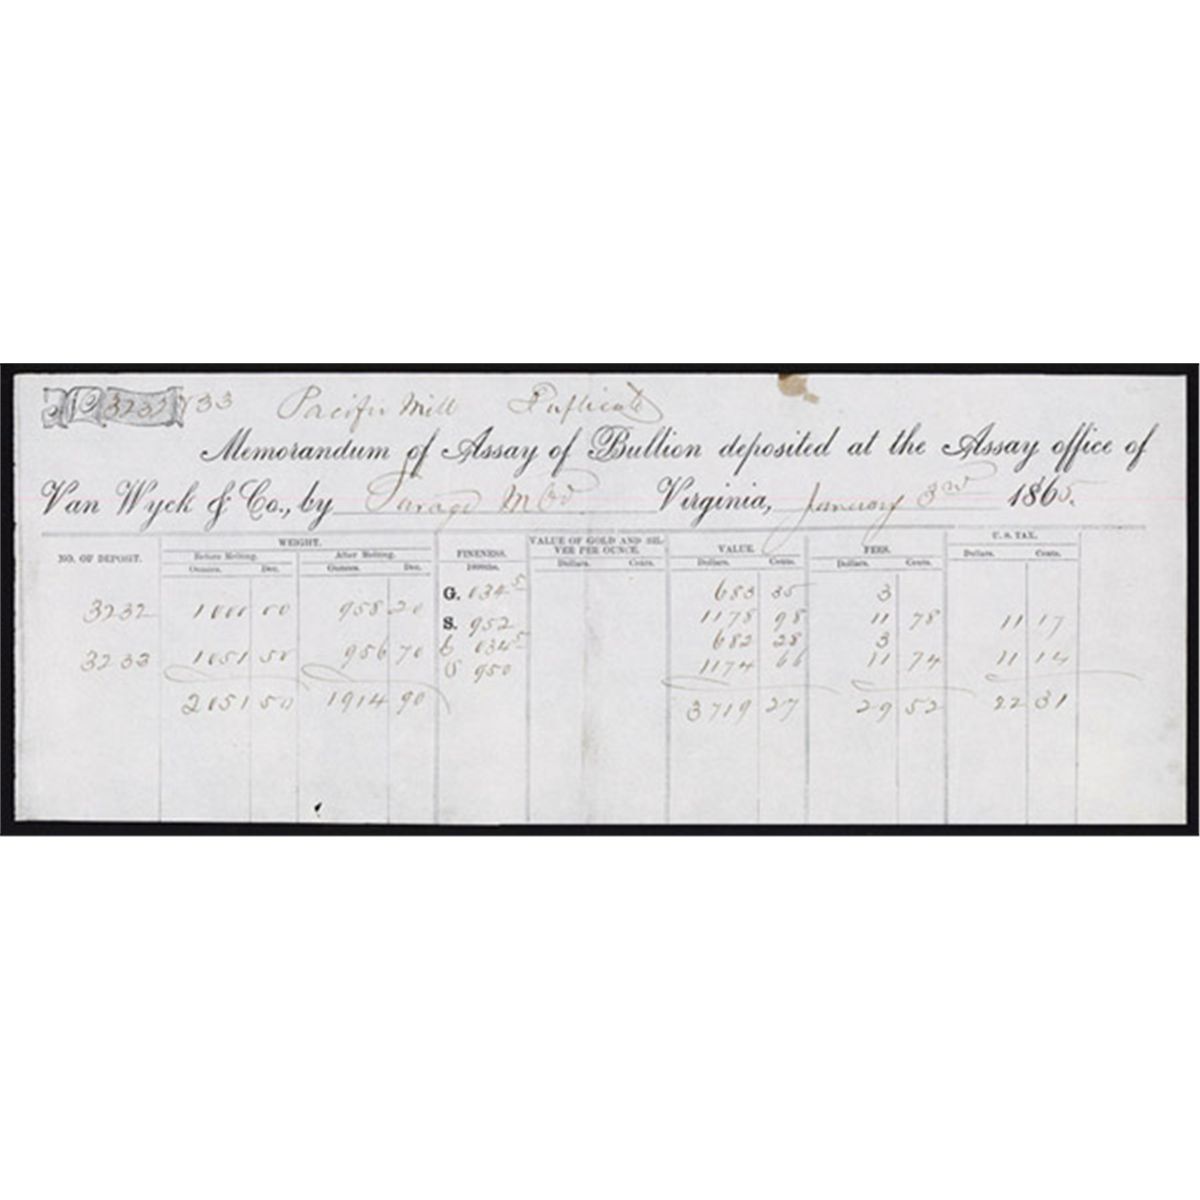 No 3232/33 Pacific Mill Duplicate
Memorandum of Assay of Bullion deposited at the Assay office of
Van Wyck & Co., by Savage M Co. Virginia, January 3rd 1865.
NO. OF DEPOSIT. WEIGHT. FINENESS. VALUE OF GOLD AND SIL- VALUE. FEES. U. S. TAX.
Before Melting. After Melting. 1000ths. VER PER OUNCE.
Ounces. Dec. Ounces. Dec. Dollars. Cents. Dollars. Cents. Dollars. Cents. Dollars. Cents.
G. 034 5 683 35 3
3232 1000 00 958 20 S. 952 1178 98 11 78 11 17
G 034 5 682 28 3
3233 1051 50 956 70 S 950 1174 66 11 74 11 14
2051 50 1914 90 3719 27 29 52 22 31